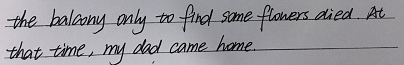 the balcony only to find some flowers died. At
that time, my dad came home.